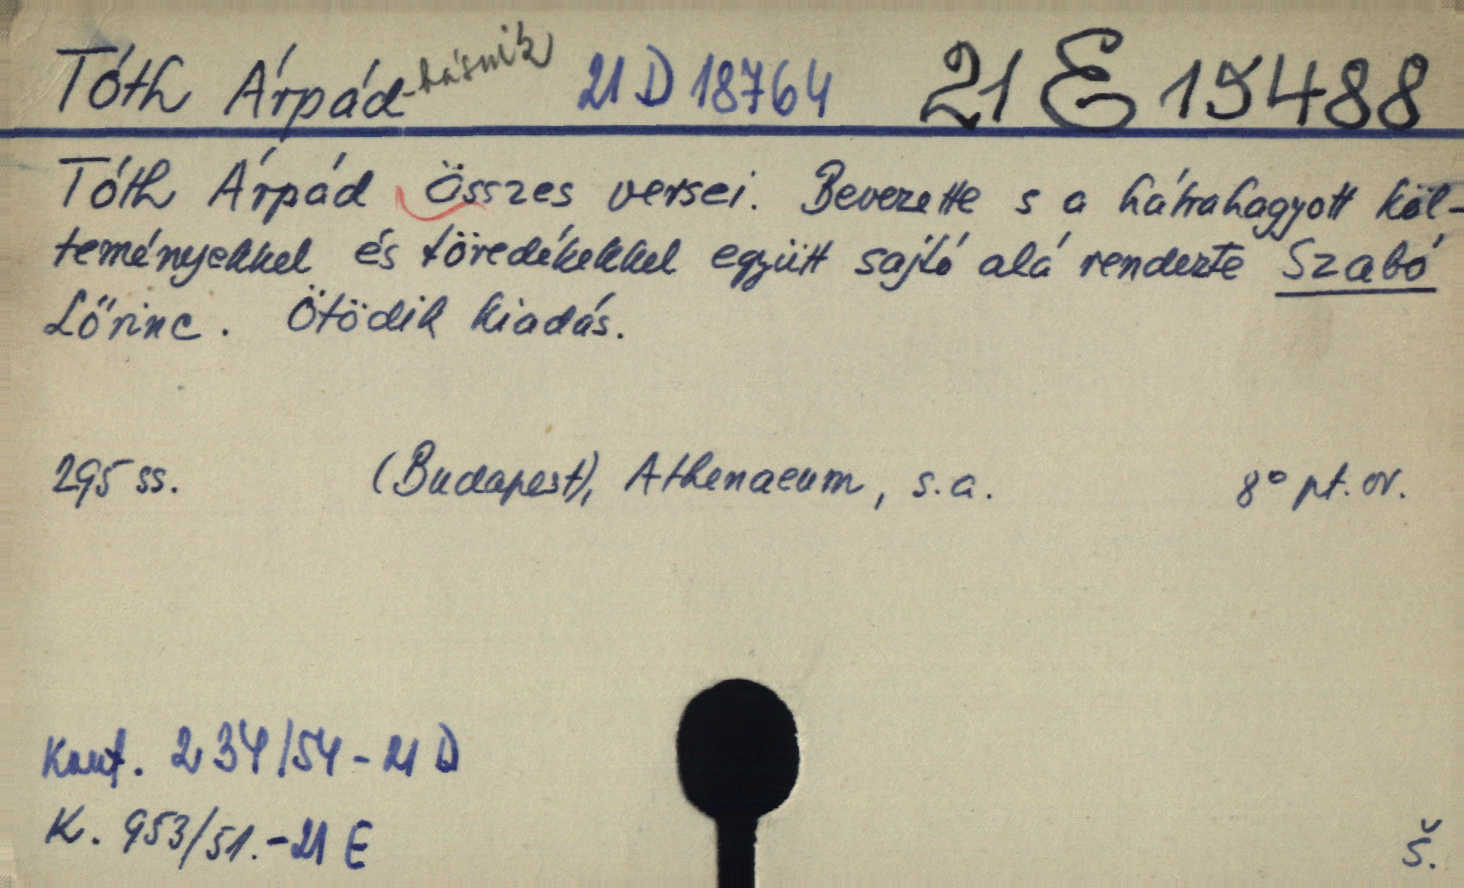 Tóth Árpád - básnik 21 D 18764 21 E 15488
Tóth Árpád Összes versei. Bevezette s a hátrahagyott köl-
teményekkel és töredékekkel együtt sajtó alá rendezte Szabó
Lőrinc. Ötödik kiadás.
295 ss. (Budapest), Athenaeum, s.a. 8° pt. or.
Konf. 234/54 - 21 D
K. 953/51. - 21 E
Š.